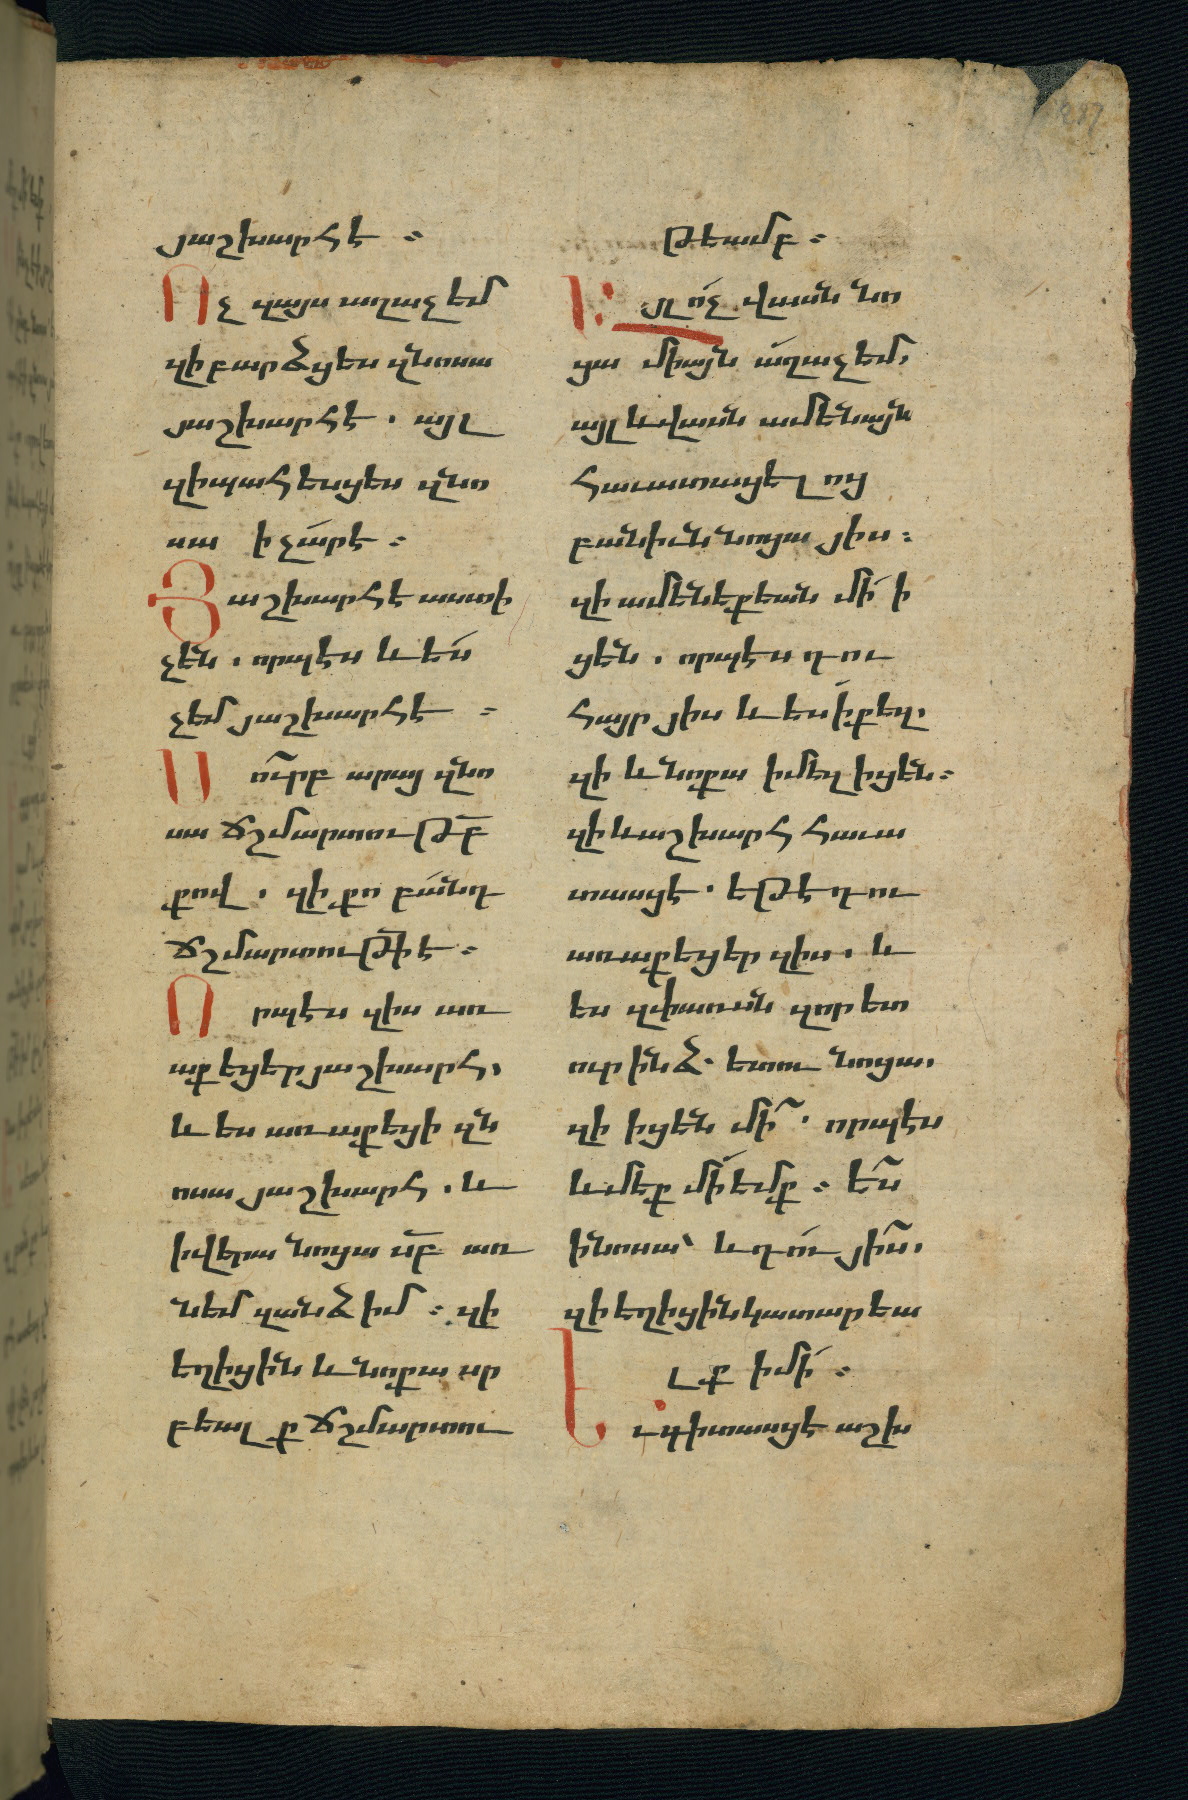 յաշխարհէ ։
Ոչ զայս աղաչեմ
զի բարձցես զնոսա
յաշխարհէ . այլ
զի պահեսցես զնո
սա ի չարէ ։
Յաշխարհէ աստի
չեն . որպէս և ես
չեմ յաշխարհէ ։
Սուրբ արայ զնո
սա ճշմարտութբ
քով . զի քո բանդ
ճշմարտութի է ։
Որպէս զիս առ
աքեցեր յաշխարհ,
և ես առաքեցի զն
ոսա յաշխարհ . և
ի վերա նոցա սբ առ
նեմ զանձ իմ ։ զի
եղիցին և նոքա սր
բեալ ք ճշմարտու
թեամբ ։
Այլ ոչ վասն նո
ցա միայն աղաչեմ,
այլ և վասն ամենայն
հաւատացելոց
բանիւն նոցա յիս ։
զի ամենեքեան մի ի
ցեն . որպէս դու
հայր յիս և ես ի քեզ,
զի և նոքա ի մեզ իցեն ։
զի և աշխարհ հաւա
տասցէ . եթէ դու
առաքեցեր զիս . և
ես զփառսն զոր ետ
ուր ինձ . ետու նոցա,
զի իցեն մի . որպէս
և մեք մի եմք ։ Ես
ի նոսա՝ և դու յիս,
զի եղիցին կատարեա
լք ի մի ։
Եւ գիտասցէ աշխ